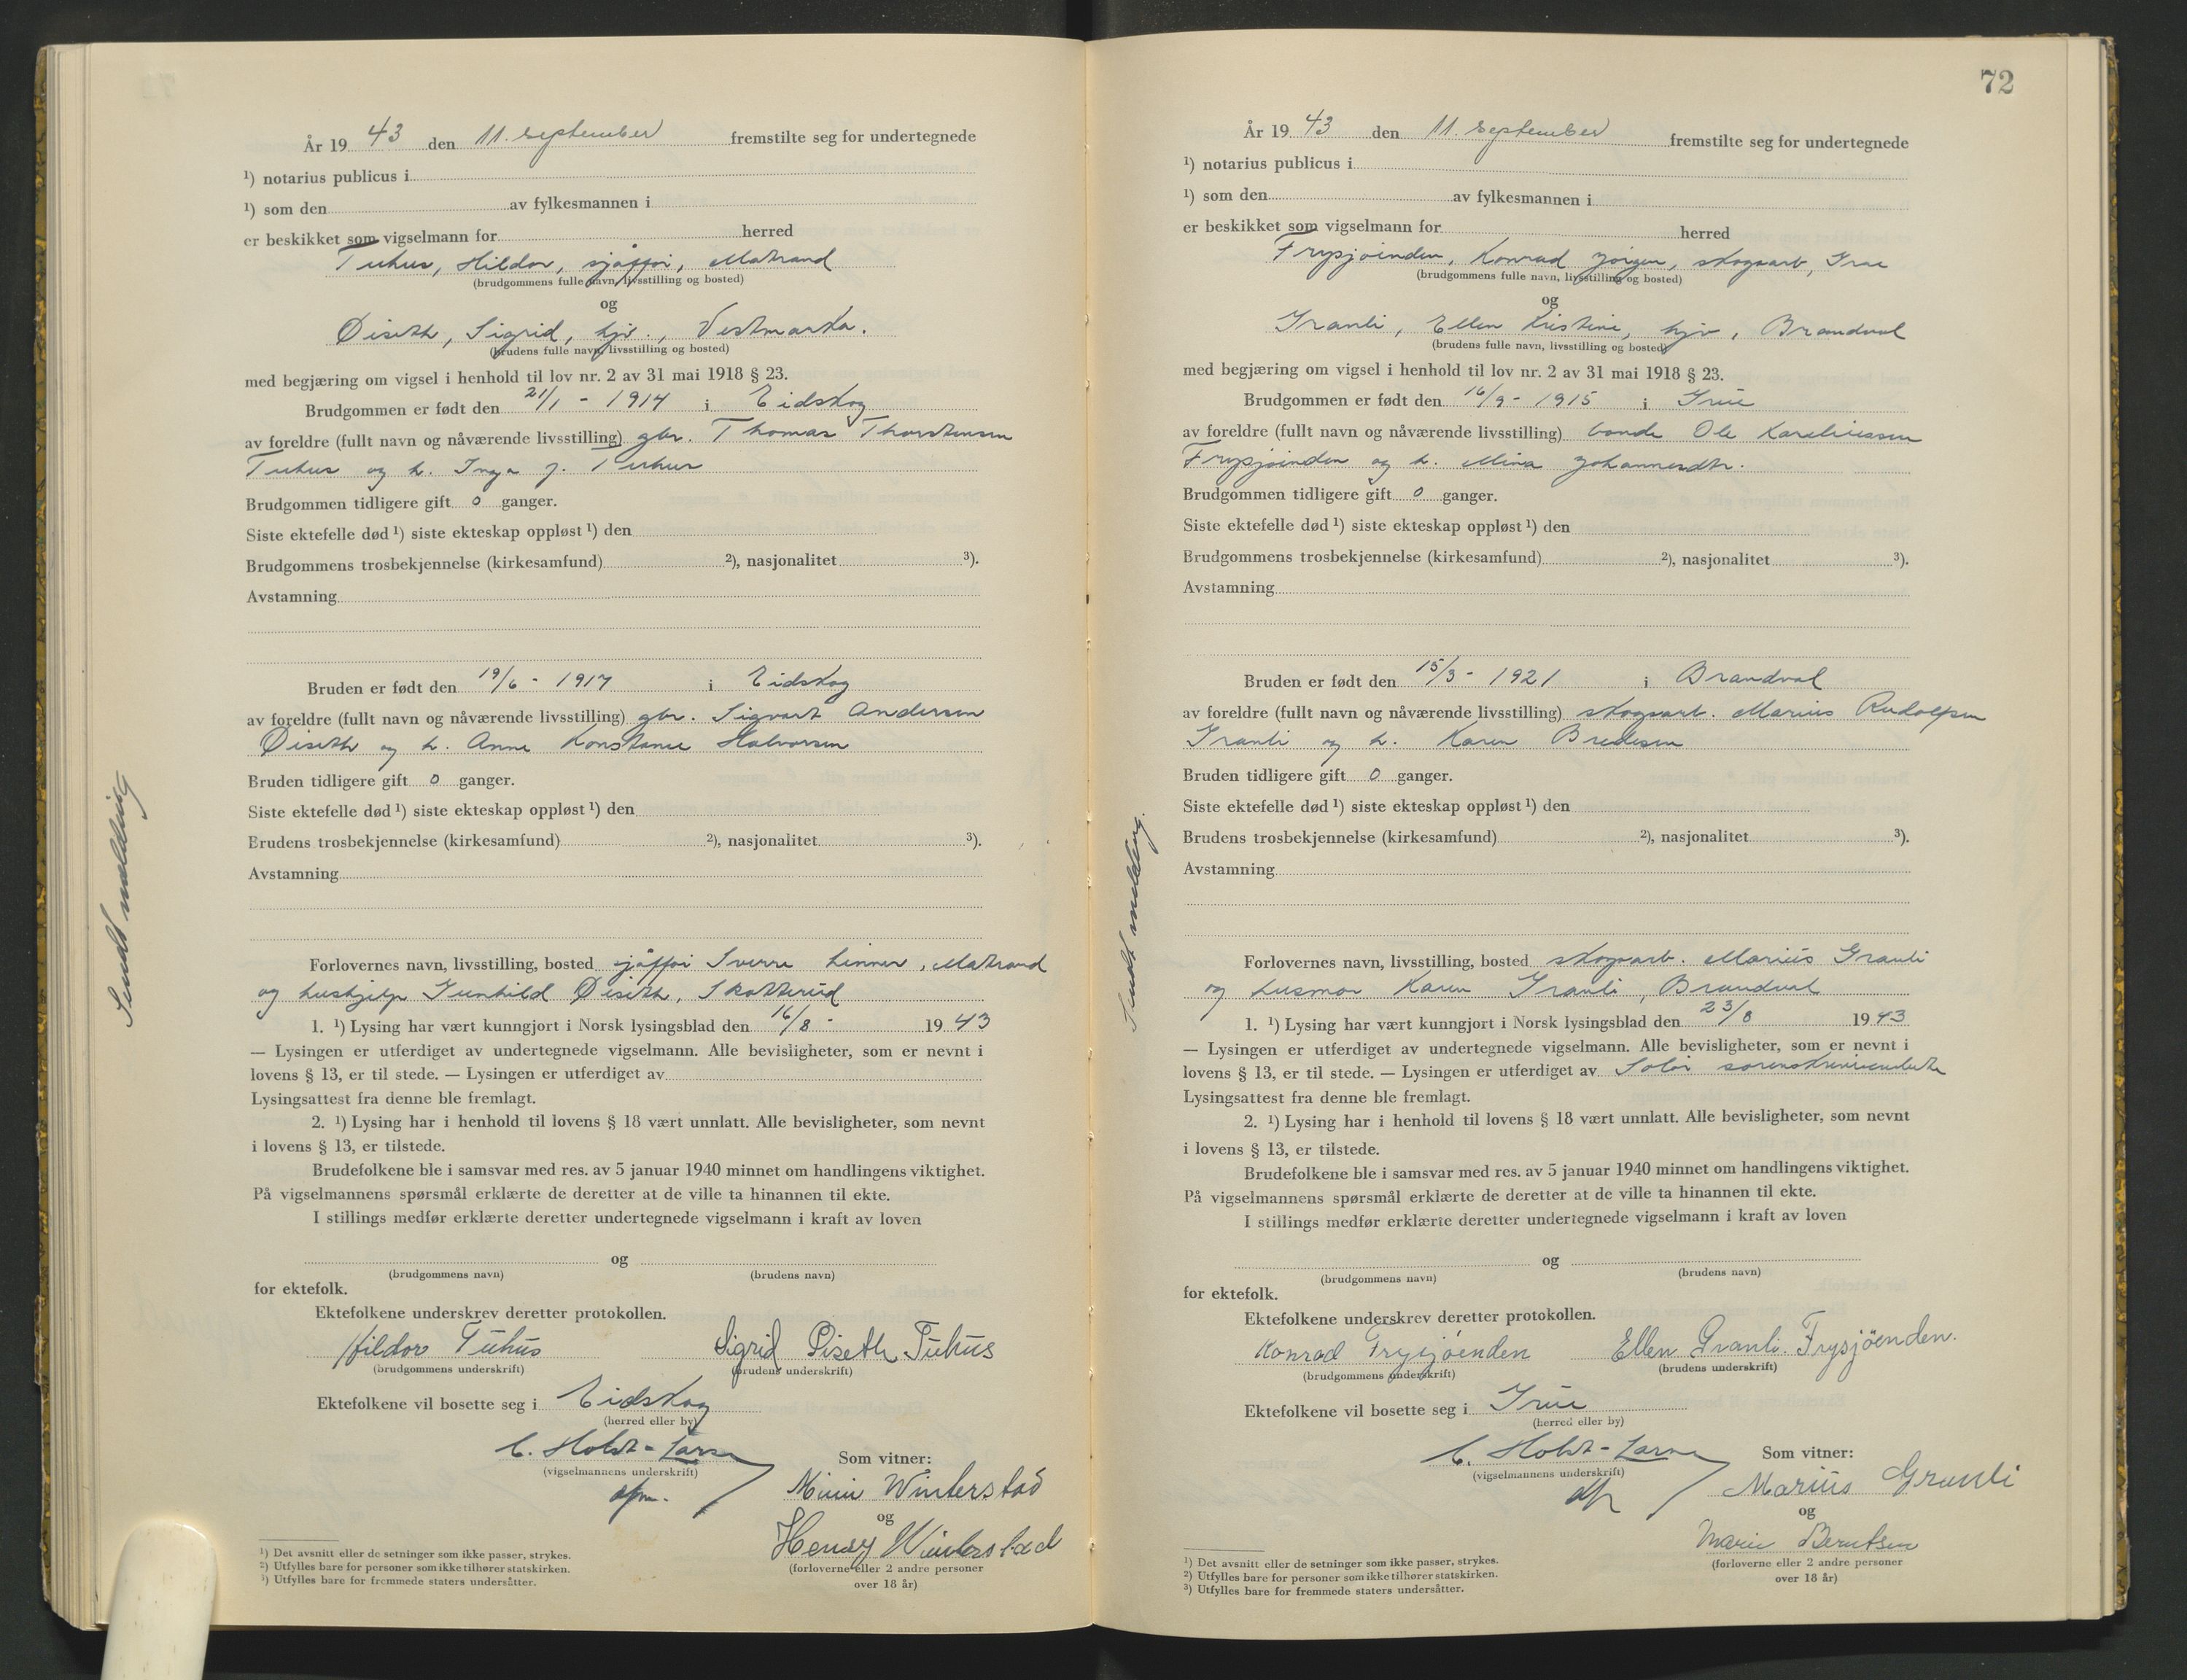 År 19 43 den 11. september fremstilte seg for undertegnede
¹) notarius publicus i
¹) som den av fylkesmannen i
er beskikket som vigselmann for herred
Tuhus, Hildor, sjåffør, Matrand
(brudgommens fulle navn, livsstilling og bosted)
og
Øiseth, Sigrid, hjv., Vestmarka.
(brudens fulle navn, livsstilling og bosted)
med begjæring om vigsel i henhold til lov nr. 2 av 31 mai 1918 § 23.
Brudgommen er født den 21/1 - 1914 i Eidskog
av foreldre (fullt navn og nåværende livsstilling) gbr. Thomas Thorstensen
Tuhus og h. Inga J. Tuhus
Brudgommen tidligere gift 0 ganger.
Siste ektefelle død ¹) siste ekteskap oppløst ¹) den
Brudgommens trosbekjennelse (kirkesamfund) ²), nasjonalitet ³).
Avstamning
Bruden er født den 19/6 - 1917 i Eidskog
av foreldre (fullt navn og nåværende livsstilling) gbr. Sigvart Andersen
Øiseth og h. Anne Konstanse Halvorsen
Bruden tidligere gift 0 ganger.
Siste ektefelle død ¹) siste ekteskap oppløst ¹) den
Brudens trosbekjennelse (kirkesamfund) ²), nasjonalitet ³).
Avstamning
Forlovernes navn, livsstilling, bosted sjåffør Sverre Linner, Matrand
og hushjelp Gunhild Øiseth, Skotterud
1. ¹) Lysing har vært kunngjort i Norsk lysingsblad den 16/8 - 19 43
— Lysingen er utferdiget av undertegnede vigselmann. Alle bevisligheter, som er nevnt i
lovens § 13, er til stede. — Lysingen er utferdiget av
Lysingsattest fra denne ble fremlagt.
2. ¹) Lysing har i henhold til lovens § 18 vært unnlatt. Alle bevisligheter, som nevnt
i lovens § 13, er tilstede.
Brudefolkene ble i samsvar med res. av 5 januar 1940 minnet om handlingens viktighet.
På vigselmannens spørsmål erklærte de deretter at de ville ta hinannen til ekte.
I stillings medfør erklærte deretter undertegnede vigselmann i kraft av loven
og
(brudgommens navn) (brudens navn)
for ektefolk.
Ektefolkene underskrev deretter protokollen.
Hildor Tuhus Sigrid Øiseth Tuhus
(brudgommens underskrift) (brudens underskrift)
Ektefolkene vil bosette seg i Eidskog
(herred eller by)
C. Holst-Larsen
(vigselmannens underskrift)
Som vitner:
Minni Winterstad
og
Henry Winterstad
(forloverne eller 2 andre personer
over 18 år)
¹) Det avsnitt eller de setninger som ikke passer, strykes.
²) Utfylles bare for personer som ikke tilhører statskirken.
³) Utfylles bare for fremmede staters undersåtter.
Sendt melding
72
År 19 43 den 11. september fremstilte seg for undertegnede
¹) notarius publicus i
¹) som den av fylkesmannen i
er beskikket som vigselmann for herred
Frysjøenden, Konrad Jørgen, skogsarb, Grue
(brudgommens fulle navn, livsstilling og bosted)
og
Granli, Ellen Kristine, hjv, Brandval
(brudens fulle navn, livsstilling og bosted)
med begjæring om vigsel i henhold til lov nr. 2 av 31 mai 1918 § 23.
Brudgommen er født den 16/9 - 1915 i Grue
av foreldre (fullt navn og nåværende livsstilling) bonde Ole Kareliussen
Frysjøenden og h. Mina Johannesdtr.
Brudgommen tidligere gift 0 ganger.
Siste ektefelle død ¹) siste ekteskap oppløst ¹) den
Brudgommens trosbekjennelse (kirkesamfund) ²), nasjonalitet ³).
Avstamning
Bruden er født den 15/3 - 1921 i Brandval
av foreldre (fullt navn og nåværende livsstilling) skogsarb. Marius Rudolfsen
Granli og h. Karen Bredesen
Bruden tidligere gift 0 ganger.
Siste ektefelle død ¹) siste ekteskap oppløst ¹) den
Brudens trosbekjennelse (kirkesamfund) ²), nasjonalitet ³).
Avstamning
Forlovernes navn, livsstilling, bosted skogsarb. Marius Granli
og husmor Karen Granli, Brandval
1. ¹) Lysing har vært kunngjort i Norsk lysingsblad den 23/8 19 43
— Lysingen er utferdiget av undertegnede vigselmann. Alle bevisligheter, som er nevnt i
lovens § 13, er til stede. — Lysingen er utferdiget av Solør sorenskriverembete
Lysingsattest fra denne ble fremlagt.
2. ¹) Lysing har i henhold til lovens § 18 vært unnlatt. Alle bevisligheter, som nevnt
i lovens § 13, er tilstede.
Brudefolkene ble i samsvar med res. av 5 januar 1940 minnet om handlingens viktighet.
På vigselmannens spørsmål erklærte de deretter at de ville ta hinannen til ekte.
I stillings medfør erklærte deretter undertegnede vigselmann i kraft av loven
og
(brudgommens navn) (brudens navn)
for ektefolk.
Ektefolkene underskrev deretter protokollen.
Konrad Frysjøenden Ellen Granli. Frysjöenden.
(brudgommens underskrift) (brudens underskrift)
Ektefolkene vil bosette seg i Grue
(herred eller by)
C. Holst-Larsen
(vigselmannens underskrift)
Som vitner:
Marius Granli
og
Marie Berntsen
(forloverne eller 2 andre personer
over 18 år)
¹) Det avsnitt eller de setninger som ikke passer, strykes.
²) Utfylles bare for personer som ikke tilhører statskirken.
³) Utfylles bare for fremmede staters undersåtter.
Sendt melding.